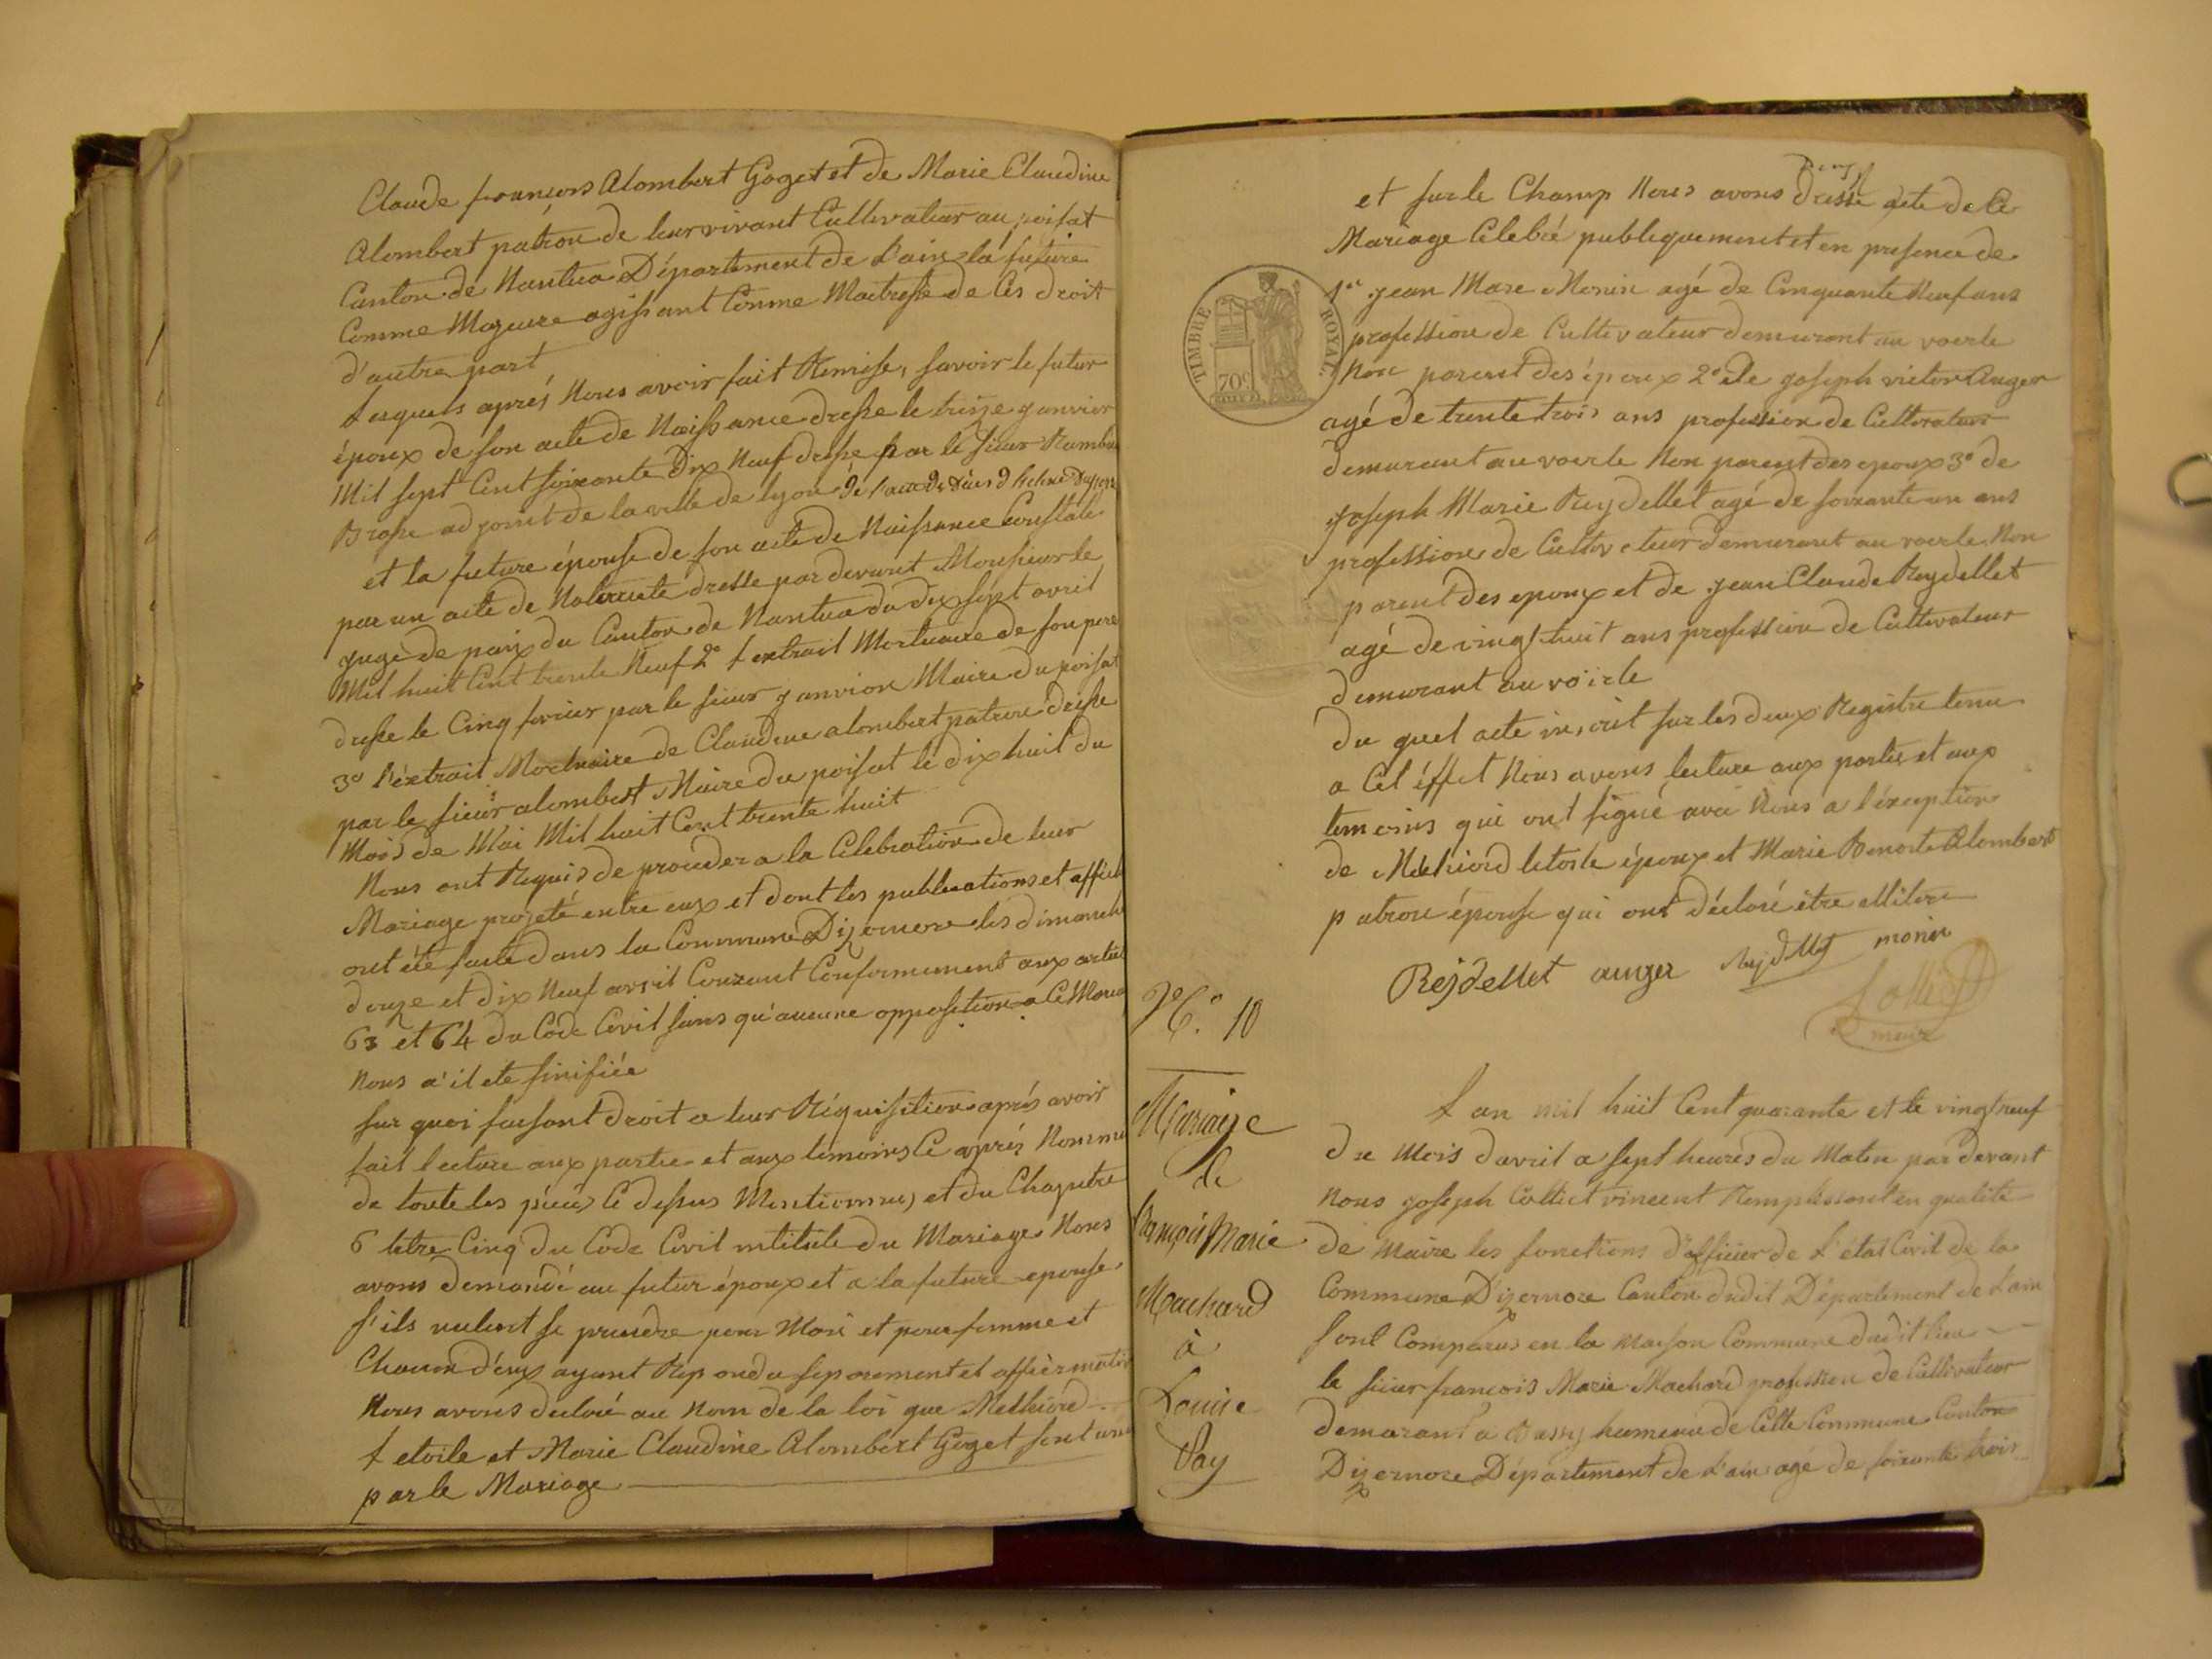 Claude françois Alombert Goget et de Marie Claudine
Alombert patron de leur vivant Cultivateur au poisat
Canton de Nantua Département de l'ain la future
Comme Majeure agissant Comme Maitresse de Ces droit
d'autre part
Lesquels aprés Nous avoir fait Remise, savoir le futur
époux de son acte de Naissance dressé le treize janvier
Mil sept Cent soixante Dix Neuf dressé par le sieur
Brosse adjoint de la ville de lyon de l'acte de décès d
et la future épouse de son acte de Naissance Constaté
par un acte de Notorieté dressé par devant Monsieur le
juge de paix du Canton de Nantua du dix sept avril
Mil huit Cent trente Neuf 2° l extrait Mortuaire de son pere
dressé le Cinq fevrier par le sieur janvion Maire du poisat
3° l'éxtrait Mortuaire de Claudine alombert patron dréssé
par le sieur alombert Maire du poisat le dix huit du
Mois de Mai Mil huit Cent trente huit
Nous ont Requis de proceder a la Celebration de leur
Mariage projeté entre eux et dont les publications et affich
ont été faite dans la Commune Dizernore les dimanche
douze et dix Neuf avril Courant Conformement aux articl
63 et 64 du Code Civil sans qu'aucune opposition a Ce Maria
Nous a'it ete sinifiée
sur quoi faisant droit a leur Réquisition aprés avoir
fait lecture aux partie et aux temoins Ce aprés Nommé
de toute les piéces Ce dessus Mentionnes, et du Chapitre
6 titre Cinq du Code Civil intitulé du Mariage Nous
avons demandé au futur époux et a la future epouse
s'ils veulent se prendre pour Mari et pour femme et
Chacun d'eux ayant Repondu séparement et affirmativ
Nous avons declaré au Nom de la loi que Melkiord
Letoile et Marie Claudine Alombert Goget sont uni
par le Mariage
et sur le Champ Nous avons dressé acte de Ce
Mariage Celebré publiquement et en presence de
TIMBRE ROYAL
70c
1er jean Marc Monin agé de Cinquante Neuf ans
profession de Cultivateur demurant au voerle
Non parent des époux 2° de joseph victor Auger
agé de trente trois ans profession de Cultivateur
demurant au voerle Non parent des epoux 3° de
joseph Marie Reydellet agé de soixante un ans
profession de Cultivateur demurant au voerle Non
parent des epoux et de jean Claude Reydellet
agé de vingt huit ans profession de Cultivateur
demurant au voërle
du quel acte inscrit sur les deux Registre tenu
a Cet éffet Nous avons lecture aux partie, et aux
temoins qui ont signé avec Nous a l'éxception
de Melkiord letoile époux et Marie Benoite Alombert
patron épouse qui ont déclaré être illitere
Rejdellet auger Rejdellet monin
maire
N°. 10
Mariage
de
françois Marie
Machard
à
Louise
Pay
L an mil huit Cent quarante et le vingt neuf
du Mois davril a sept heures du Matin par devant
Nous joseph Colliet vincent Remplissant en qualité
de Maire les fonctions d'officier de l'état Civil de la
Commune Dizernore Canton dudit Département de l'ain
sont Comparus en la maison Commune dudit lieu
le sieur francois Marie Machard profession de Cultivateur
demurant a hameau de Cette Commune Canton
Dizernore Département de l'ain agé de soixante trois